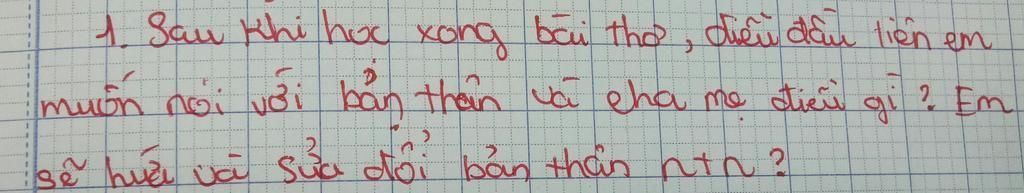 1. Sau khi học xong bài thơ, điều đầu tiên em
muốn nói với bản thân và cha mẹ điều gì? Em
sẽ hứa và sửa đổi bản thân ntn?